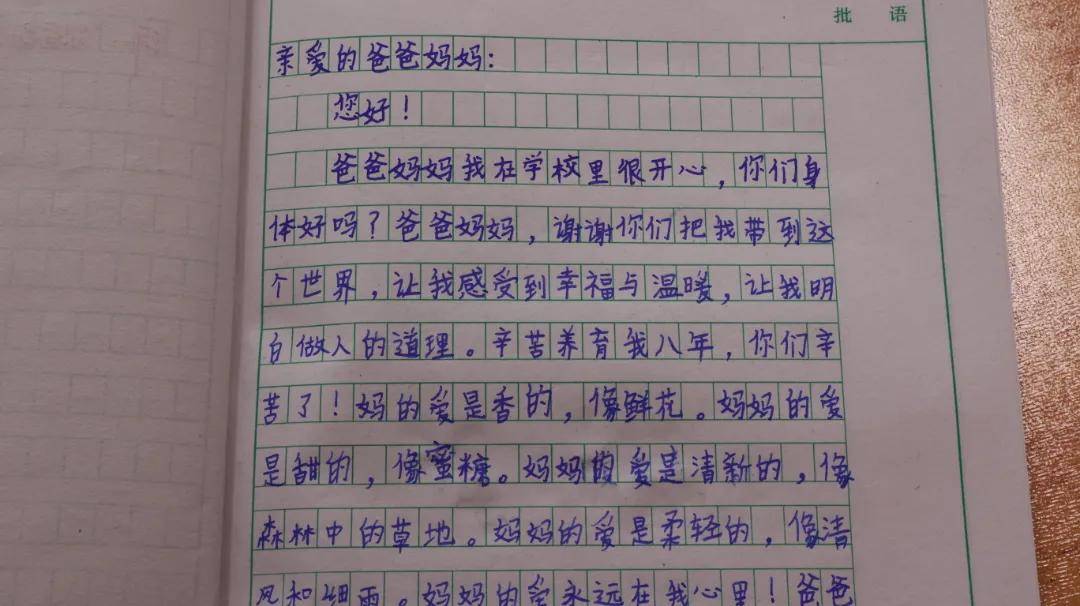 批 语
亲爱的爸爸妈妈：
您好！
爸爸妈妈我在学校里很开心，你们身
体好吗？爸爸妈妈，谢谢你们把我带到这
个世界，让我感受到幸福与温暖，让我明
白做人的道理。辛苦养育我八年，你们辛
苦了！妈的爱是香的，像鲜花。妈妈的爱
是甜的，像蜜糖。妈妈的爱是清新的，像
森林中的草地。妈妈的爱是柔轻的，像清
风和细雨。妈妈的爱永远在我心里！爸爸